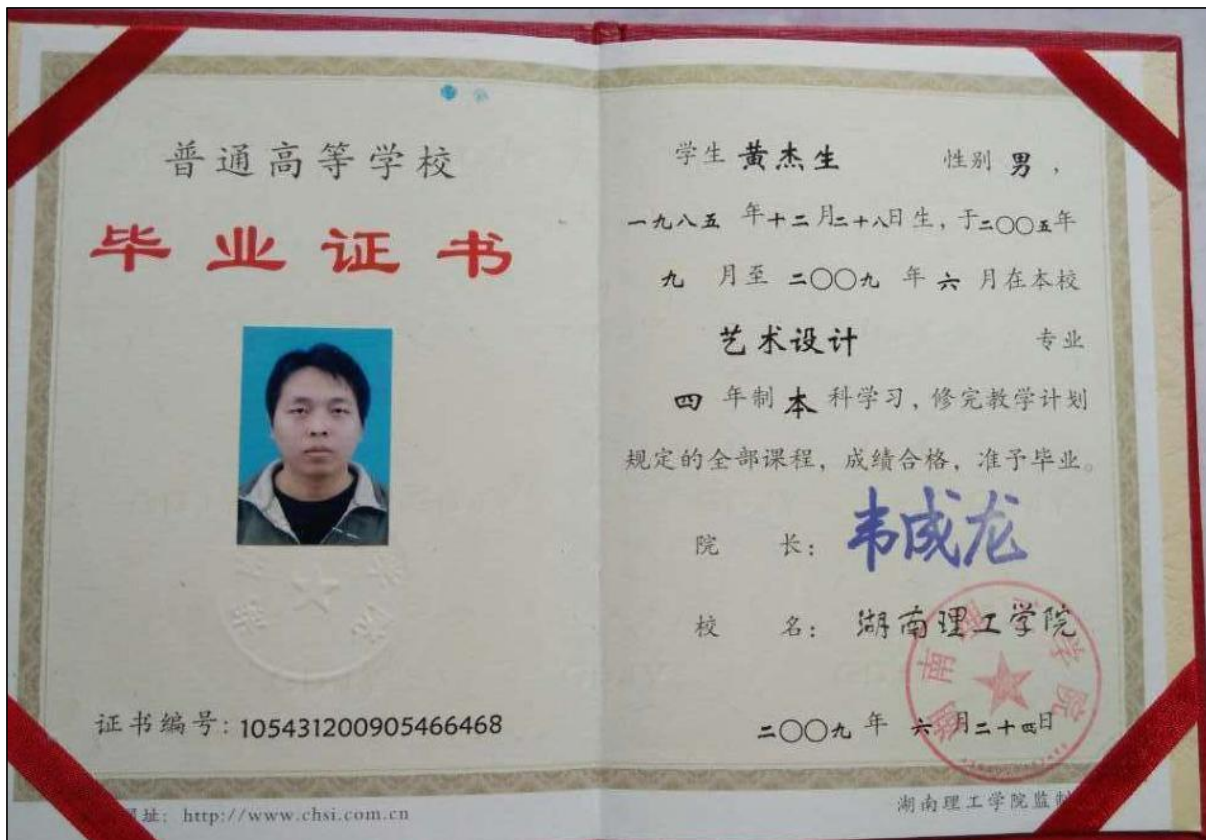 普通高等学校
毕业证书
证书编号：105431200905466468
网址：http://www.chsi.com.cn
学生 黄杰生 性别 男，
一九八五 年十二月二十八日生，于二〇〇五年
九 月至 二〇〇九 年 六 月在本校
艺术设计 专业
四 年制 本 科学习，修完教学计划
规定的全部课程，成绩合格，准予毕业。
院 长：韦成龙
校 名：湖南理工学院
湖南理工学院
二〇〇九 年 六 月二十四日
湖南理工学院监制